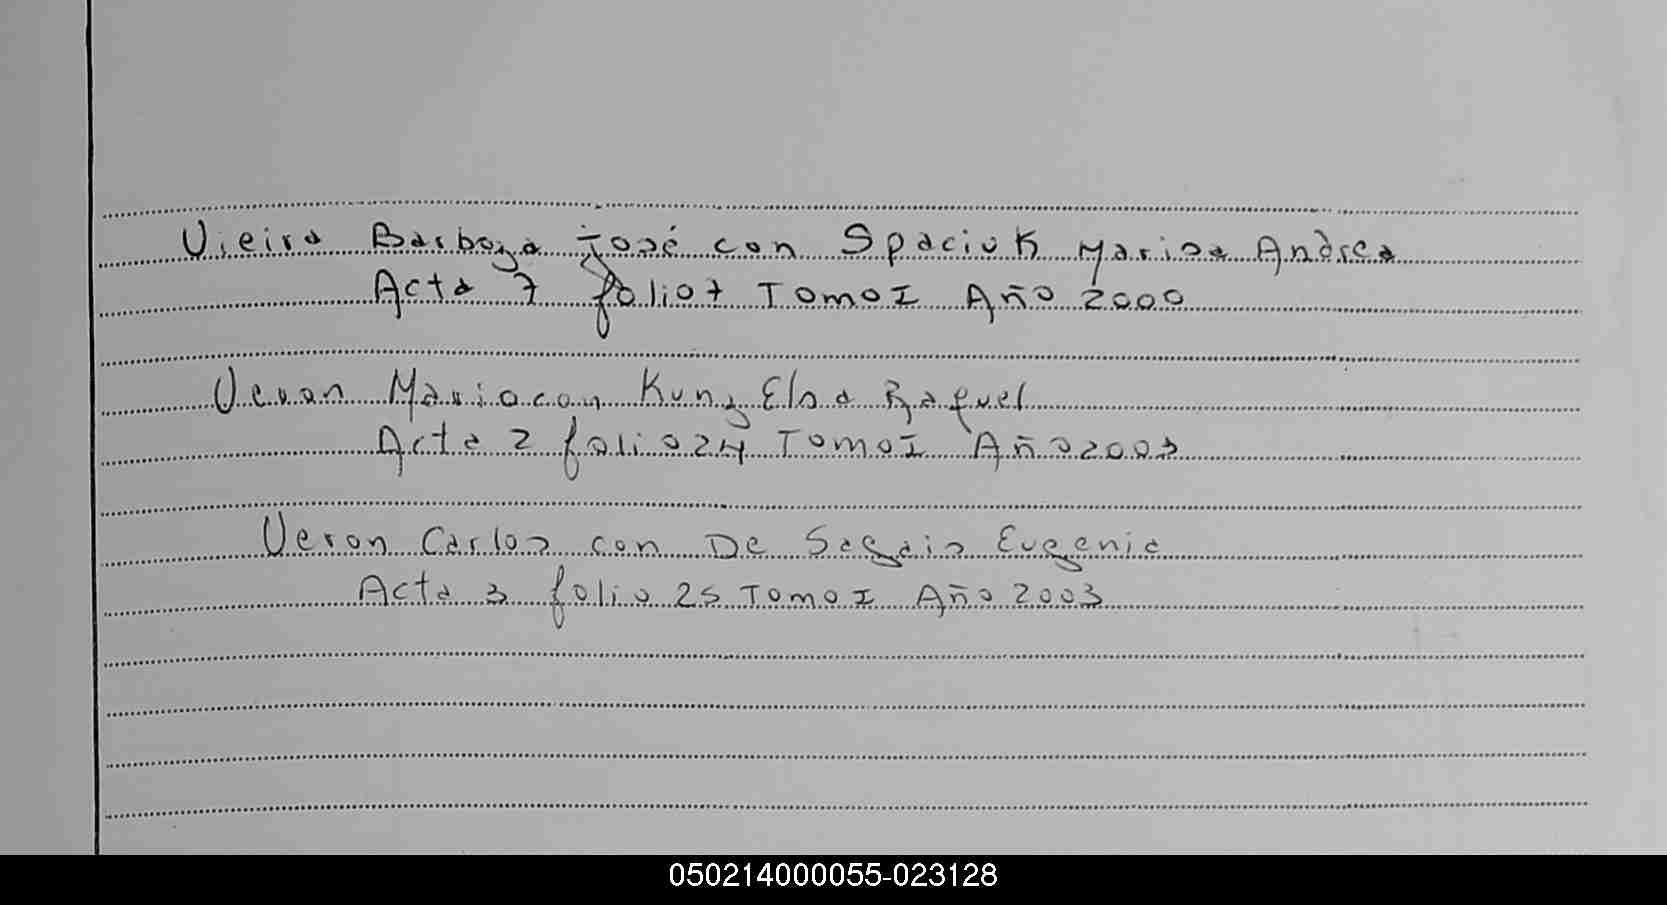 Vieira Barboza José con Spaciuk Marisa Andrea
Acta 7 folio 7 Tomo I Año 2000
Veron Mario con Kunz Elsa Raquel
Acta 2 folio 24 Tomo I Año 2003
Veron Carlos con De Eugenia
Acta 3 folio 25 Tomo I Año 2003
050214000055-023128